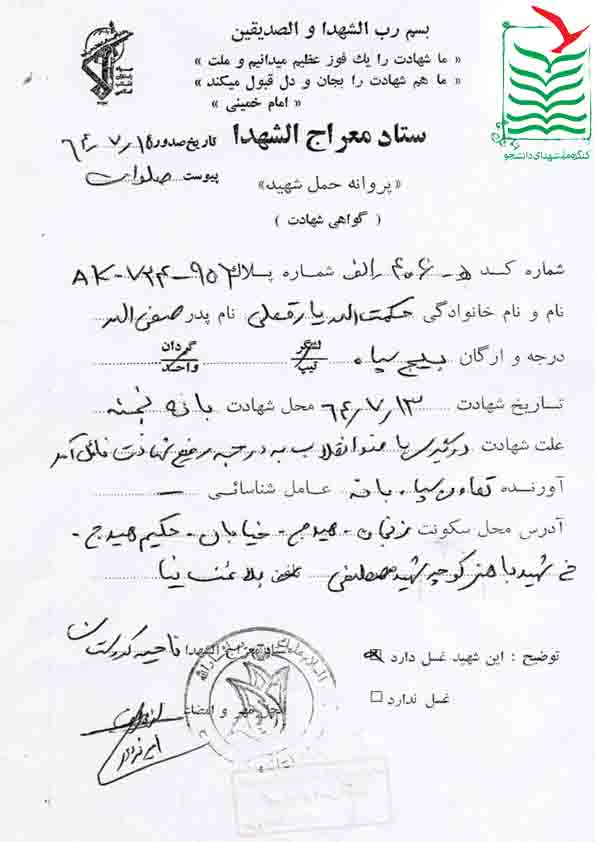 بسم رب الشهدا و الصدیقین
« ما شهادت را یك فوز عظیم میدانیم و ملت »
« ما هم شهادت را بجان و دل قبول میکند »
« امام خمینی »
سپاه پاسداران انقلاب اسلامی
کنگره ملی شهدای دانشجو
ستاد معراج الشهدا
تاریخ صدور ۶۴٫۷٫۱۵
پیوست صلوات
«پروانه حمل شهید»
( گواهی شهادت )
شماره کد ۵-۴۰۶ الف شماره پلاک AK-۷۳۴-۹۵۲
نام و نام خانوادگی حکمت اله یارقعلی نام پدر صفی اله
درجه و ارگان بسیج سپاه لشگر تیپ گردان واحد
تاریخ شهادت ۶۴٫۷٫۱۳ محل شهادت بانه
علت شهادت درگیری با ضد انقلاب به درجه رفیع شهادت نائل آمد
آورنده تعاون سپاه بانه عامل شناسائی —
آدرس محل سکونت زنجان - هیدج - خیابان - حکیم هیدجی -
خ شهید باهنر کوچه شهید مصطفی تلفن
توضیح : این شهید غسل دارد
غسل ندارد
ستاد معراج الشهدا ناحیه کردستان
محل مهر و امضاء